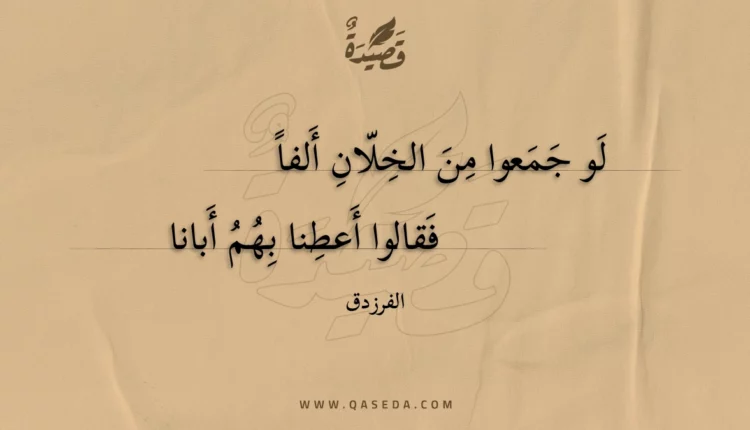 قَصِيْدَةٌ
لَو جَمَعوا مِنَ الخِلّانِ أَلفاً
فَقالوا أَعطِنا بِهُمُ أَبانا
الفرزدق
WWW.QASEDA.COM